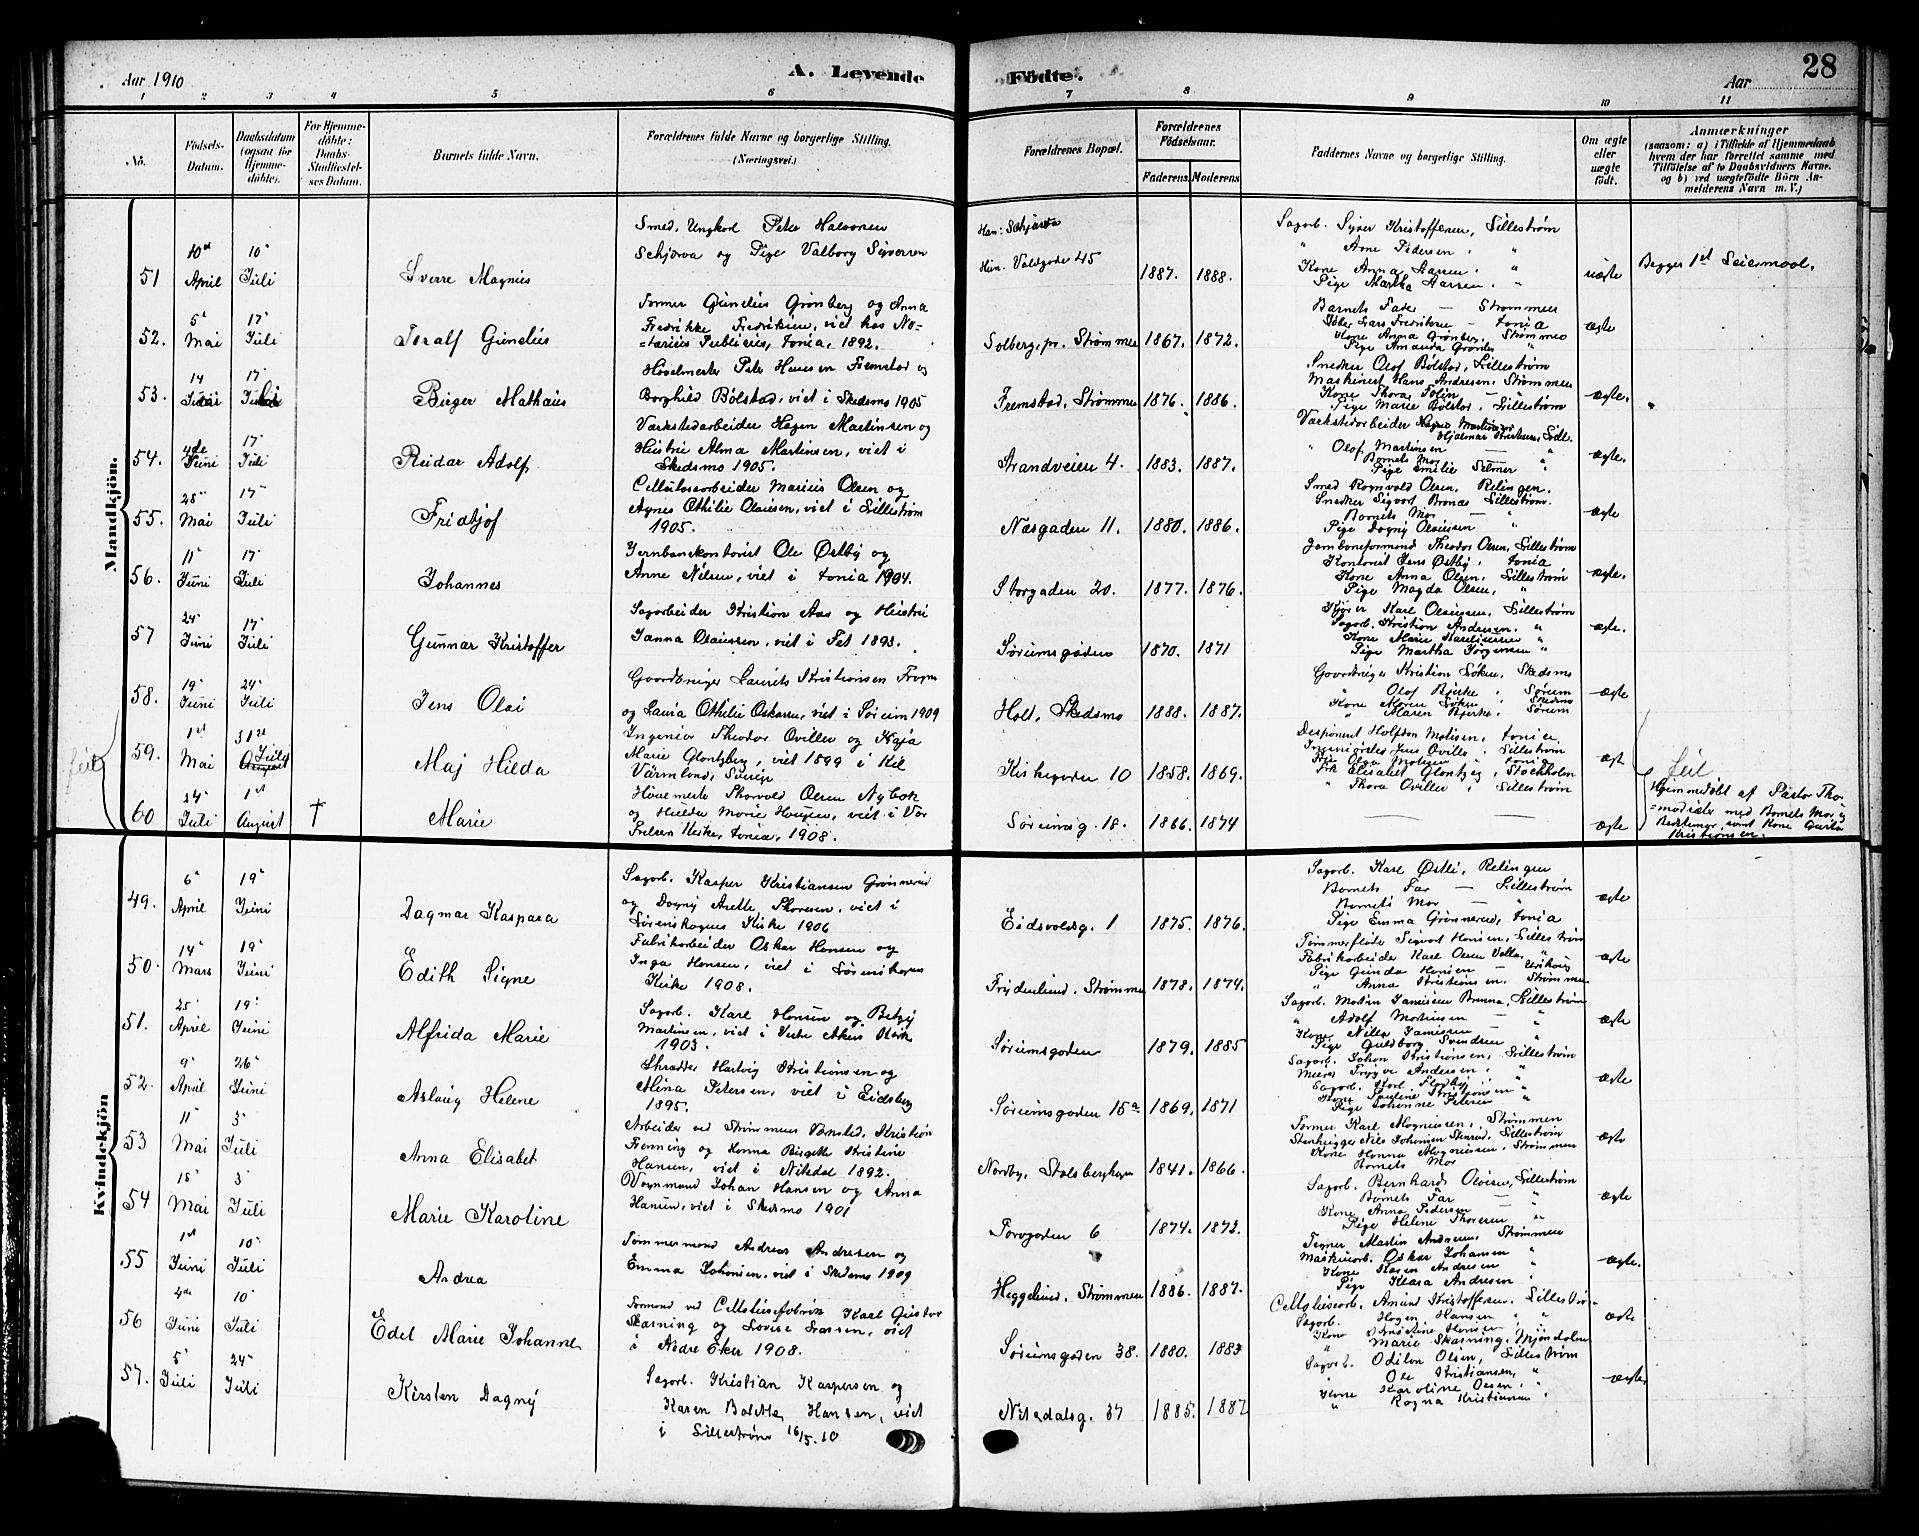 Aar 1910
A. Levende
Fødte.
Aar
28
1 2 3 4 5 6 7 8 9 10 11
No.
Fødsels-
Datum.
Daabsdatum
(ogsaa for
Hjemme-
døbte).
For Hjemme-
døbte:
Daabs-
Stadfæstel-
ses Datum.
Barnets fulde Navn.
Forældrenes fulde Navne og borgerlige Stilling.
(Næringsvei.)
Forældrenes Bopæl.
Forældrenes
Fødselsaar.
Faderens. Moderens
Faddernes Navne og borgerlige Stilling.
Om ægte
eller
uægte
født.
Anmærkninger
(saasom: a) i Tilfælde af Hjemmedaab
hvem der har forrettet samme med
Tilføielse af to Daabsvidners Navne.
og b) ved uægtefødte Børn An-
melderens Navn m. V.)
Mandkjön.
51
10de April
10" Juli
Sverre Magnus
Smed, Ungkarl Peter Halvorsen
Schjerva og Pige Valborg Syversen
Han: Schjerva
Hun: Voldgade 45
1887. 1888.
Sagarb. Syver Kristoffersen, Lillestrøm
" Arne Pedersen "
Kone Anna Larsen, "
Pige Martha Larsen, "
uægte
Begges 1ste Leiermaal.
52.
5" Mai
17" Juli
Toralf Gundius
Former Gundius Grønberg og Anna
Fredrikke Fredriksen, viet hos No-
-tarius Publicus, Xonia, 1892.
Solberg, pr. Strømmen
1867. 1872.
Barnets Fader — Strømmen
Lars Fredriksen — Xonia
Kone Anna Grønberg, Strømmen
Pige Amanda Grønberg "
ægte
53.
14 Juni
17" Juli
Birger Mathæus
Høvelmester Peter Hansen Fremstad og
Borghild Bølstad, viet i Skedsmo 1905
Fremstad, Strømmen
1876. 1886.
Snedker Olof Bølstad, Lillestrøm
Maskinist Hans Andresen, Strømmen
Kone Thora
Pige Marie Bølstad, Lillestrøm
ægte.
54.
4de Juni
17" Juli
Reidar Adolf
Værkstedarbeider Hagen Martinsen og
Hustru Alma Martinsen, viet i
Skedsmo 1905.
Strandveien 4.
1883. 1887.
Værkstedarbeider
Hjalmar
" Olof Martinsen — "
Barnets Mor — "
Pige Emilie Selmer "
ægte.
55.
28" Mai
17" Juli
Fridtjof
Cellulosearbeider Marius Olsen og
Agnes Othilie Olausen, viet i Lillestrøm
1905.
Næsgaden 11.
1880. 1886.
Smed Ragnvald Olsen, Relingen.
Snedker Sigvart Lillestrøm.
Barnets Mor — "
Pige Dagny Olausen "
ægte
56.
11" Juni
17" Juli
Johannes
Jernbanekontorist Ole Østby og
Anne Nilsen, viet i Xonia 1904.
Storgaden 20.
1877. 1876.
Jernbaneformand Theodor Olsen, Lillestrøm
Kontorist Jens Østby, Xonia
Kone Anna Olsen, Lillestrøm
Pige Magda Olsen, "
ægte.
57
24" Juni
17" Juli
Gunnar Kristoffer
Sagarbeider Kristian Aas og Hustru
Janna Olaussen, viet i Fet 1893.
Sørumsgaden
1870. 1871
Kjører Karl Olaussen, Lillestrøm
Sagarb. Kristian Andresen, "
Kone Marie "
Pige Martha Jørgensen "
ægte.
58.
19" Juni
24" Juli
Jens Olai
Gaardbruger Laurits Kristiansen
og Laura Othilie Oskarsen, viet i Sørum 1909
Holt, Skedsmo
1888. 1887.
Gaardbruger Kristian Løken, Skedsmo
" Olof Bjerke, Sørum
Kone Maren Løken, Skedsmo
" Maren Bjerke, Sørum
ægte
59.
feil
1ste Mai
31te Juli
August
Maj Hilda
Ingeniør Theodor Oviller og Kaja
Marie Glontzberg, viet 1899 i Kil
Värmland, Sverige
Kirkegaden 10
1858. 1869.
Disponent Halfdan Madsen, Xonia.
Jens Oviller, Lillestrøm
Olga Madsen, Xonia
Frk Elisabet, Stockholm
" Thora Oviller, Lillestrøm
ægt
feil
60
24" Juli
1ste August
†
Marie
Høvlemester Thorvald Olsen Nybak
og Hulda Marie Haugen, viet i Vor
Frelsers Kirke, Xonia, 1908.
Sørumsg. 18.
1866. 1874
— —
ægte
Hjemmedøbt af Pastor Tho-
=modsæter med Barnets Mor og
Bedstemor, samt Kone
Kristiansen.
Kvindekjön
49.
6" April
19" Juni
Dagmar Kaspara
Sagarb. Kasper Kristiansen Grønnerud
og Dagny Anette Thoresen, viet i
Lørenskogens Kirke 1906
Eidsvoldsg. 1
1875. 1876.
Sagarb. Karl Østli, Relingen
Barnets Far — Lillestrøm
Barnets Mor — "
Pige Emma Grønnerud, Xonia
ægte
50.
14" Mars
19" Juni
Edith Signe
Fabrikarbeider Oskar Hansen og
Inga Hansen, viet i Lørenskogens
Kirke 1908.
Frydenlund, Strømmen
1878. 1874.
Tømmerfløder Sigvart Hansen, Lillestrøm
Fabrikarbeider Karl Olsen Volla, "
Pige Gunda Hansen —
" Anna Kristiansen, Strømmen
ægte
51.
25" April
19" Juni
Alfrida Marie
Sagarb. Karl Hansen og Betzy
Martinsen, viet i Vestre Akers Kirke
1903.
Sørumsgaden
1879. 1885
Sagarb. Martin Jamissen Brenna, Lillestrøm
" Adolf Martinsen — "
Kone Nilla Jamissen — "
Pige Guldborg Svendsen "
ægte
52.
9" April
26" Juni
Aslaug Helene
Skrædder Hartvig Kristiansen og
Mina Petersen, viet i Eidsberg
1895.
Sørumsgaden 15a
1869. 1871
Sagarb. Johan Kristiansen, Lillestrøm
Murer Trygve Andersen, "
Sagarb. Karl "
Kone Pauline Kristiansen "
Pige Johanne Petersen "
ægte
53
11" Mai
3" Juli
Anna Elisabet
Arbeider ved Strømmens Værksted, Kristian
Henning og Hanna Birgitte Kristine
Hansen, viet i Nitedal 1892.
Nordby, Stalsberghagen
1841. 1866.
Former Karl Magnussen, Strømmen
Stenhugger Nils Johansen, Lillestrøm
Kone Hanna Magnussen, Strømmen
Barnets Mor
ægte
54
18" Mai
3" Juli
Marie Karoline
Vognmand Johan Hansen og Anna
Hansen, viet i Skedsmo 1901
Torvgaden 6
1874. 1872.
Sagarb. Bernhard Olaisen, Lillestrøm
Barnets Far — "
Kone Anna Pedersen — "
Pige Helene Thoresen "
ægte
55
1ste Juni
10" Juli
Andrea
Tømmermand Andreas Andresen og
Emma Johansen, viet i Skedsmo 1909
Heggelund, Strømmen
1886. 1887.
Tegner Martin Andresen, Strømmen
Maskinarb. Oskar Johansen "
Kone Karen Andresen "
Pige Klara Andresen "
ægte.
56
4de Juni
10" Juli
Edel Marie Johanne
Formand ved Cellulosefabrik Karl Gustav
Skarning og Lovise Larsen, viet
i Nedre Eker 1908.
Sørumsgaden 38.
1880. 1883
Cellulosearb. Amund Kristoffersen, Lillestrøm
Sagarb. Hagen Hansen "
Kone Kristine Hansen "
" Marie Skarning, Mjøndalen
ægte
57.
5" Juli
24" Juli
Kirsten Dagny
Sagarb. Kristian Kaspersen og
Karen Bolette Hansen, viet
i Lillestrøm 16/5.10
Nitedalsg. 37
1885. 1887
Sagarb. Odilon Olsen, Lillestrøm
" Ole Kristiansen, "
Kone Karoline Olsen, "
" Ragna Kristiansen "
ægte